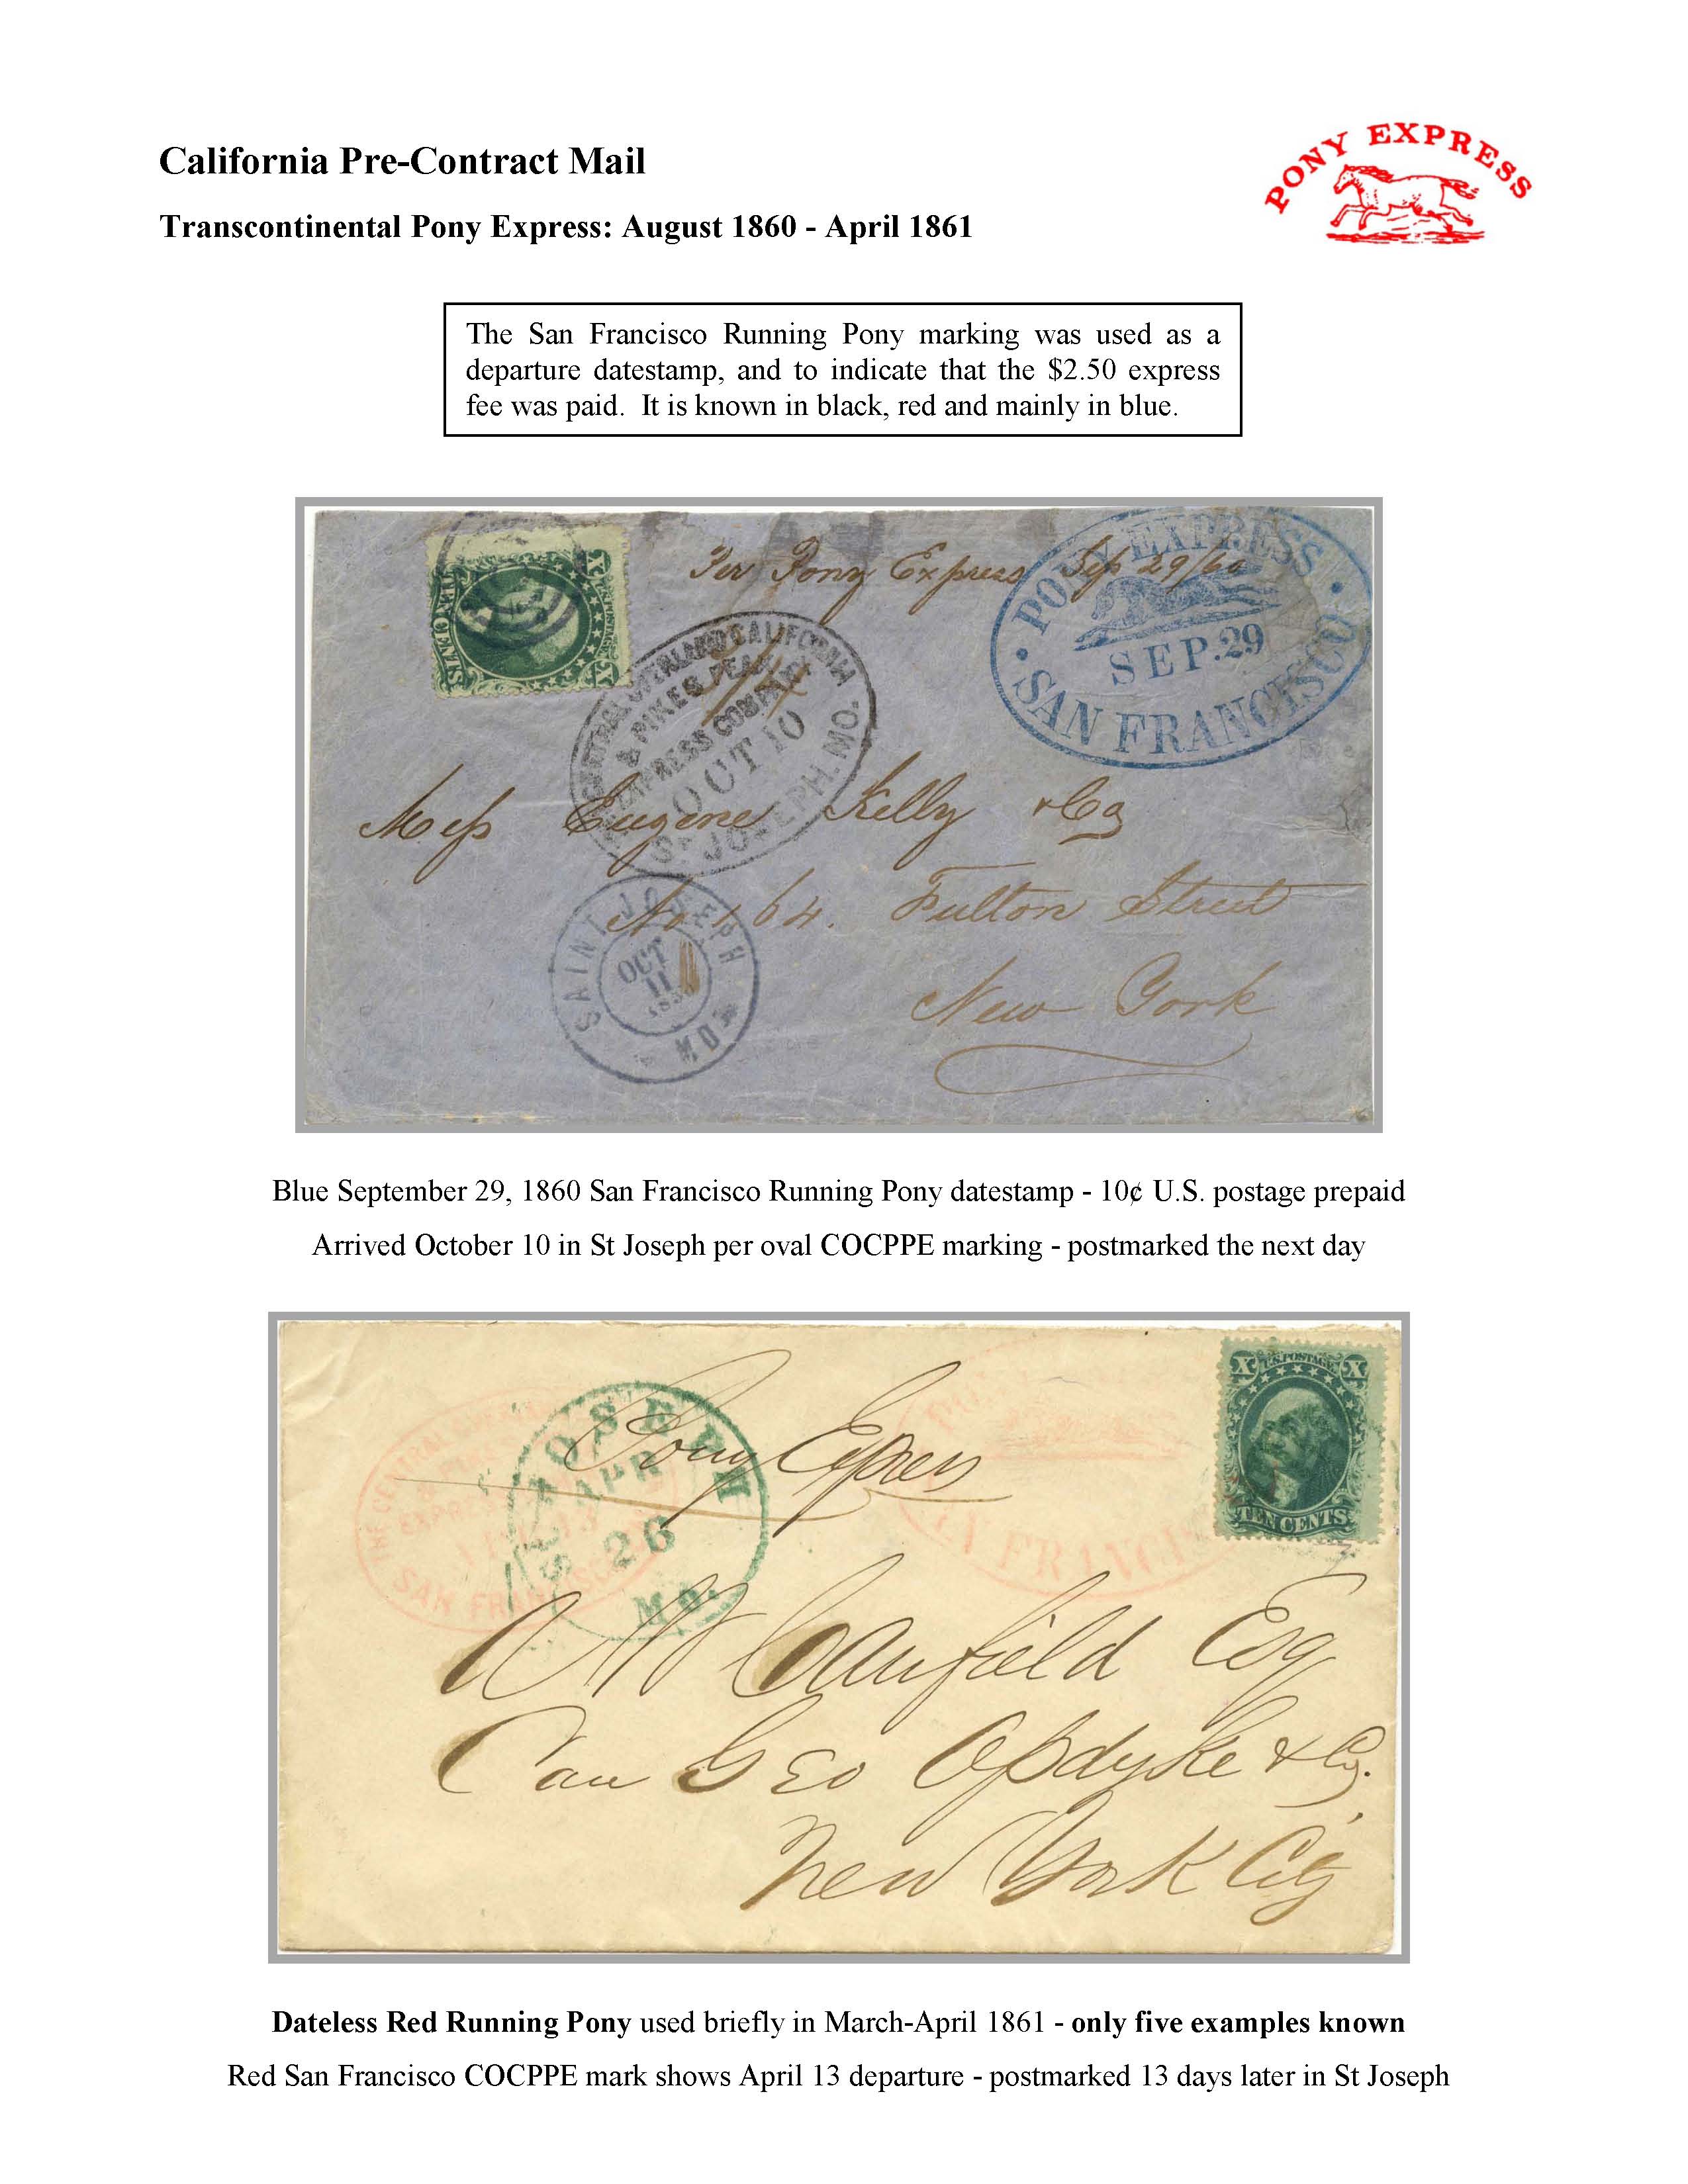 California Pre-Contract Mail
PONY EXPRESS
Transcontinental Pony Express: August 1860 - April 1861
The San Francisco Running Pony marking was used as a
departure datestamp, and to indicate that the $2.50 express
fee was paid. It is known in black, red and mainly in blue.
X TEN CENTS X
Per Pony Express Sep 29/60
PONY EXPRESS
SEP. 29
SAN FRANCISCO
CENTRAL OVERLAND CALIFORNIA
& PIKES PEAK
EXPRESS COMPANY
OCT 10
ST JOSEPH. MO.
Mess Eugene Kelly & Co
No 164. Fulton Street
New York
SAINT JOSEPH
OCT
11
MO
Blue September 29, 1860 San Francisco Running Pony datestamp - 10¢ U.S. postage prepaid
Arrived October 10 in St Joseph per oval COCPPE marking - postmarked the next day
X U.S. POSTAGE X
TEN CENTS
Pony Express
THE CENTRAL
EXPRESS
13
SAN FRANCISCO
ST JOSEPH
APR
26
MO.
Canfield Esq
Care Geo Opdyke & Co.
New York City
Dateless Red Running Pony used briefly in March-April 1861 - only five examples known
Red San Francisco COCPPE mark shows April 13 departure - postmarked 13 days later in St Joseph